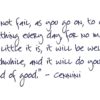 not fail, as you go on, to d
thing every day, for no ma
little it is, it will be well
while, and it will do you
d of good." - CENNINI